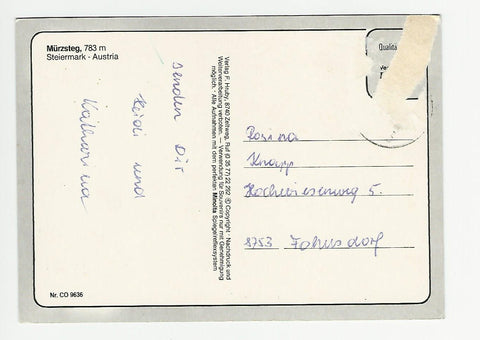 Mürzsteg, 783 m
Steiermark - Austria
senden Dir
Heidi und
Katharina
Verlag F. Hruby, 8740 Zeltweg, Ruf (0 35 77) 22 292 © Copyright · Nachdruck und
Weiterverarbeitung verboten. — Verwendung für Souvenirs nur mit Genehmigung
möglich · Alle Aufnahmen mit dem perfekten Minolta Spiegelreflexsystem
Qualitä
Ve
Rosina
Knapp
Hochwiesenweg 5.
8753 Fohnsdorf
Nr. CO 9636